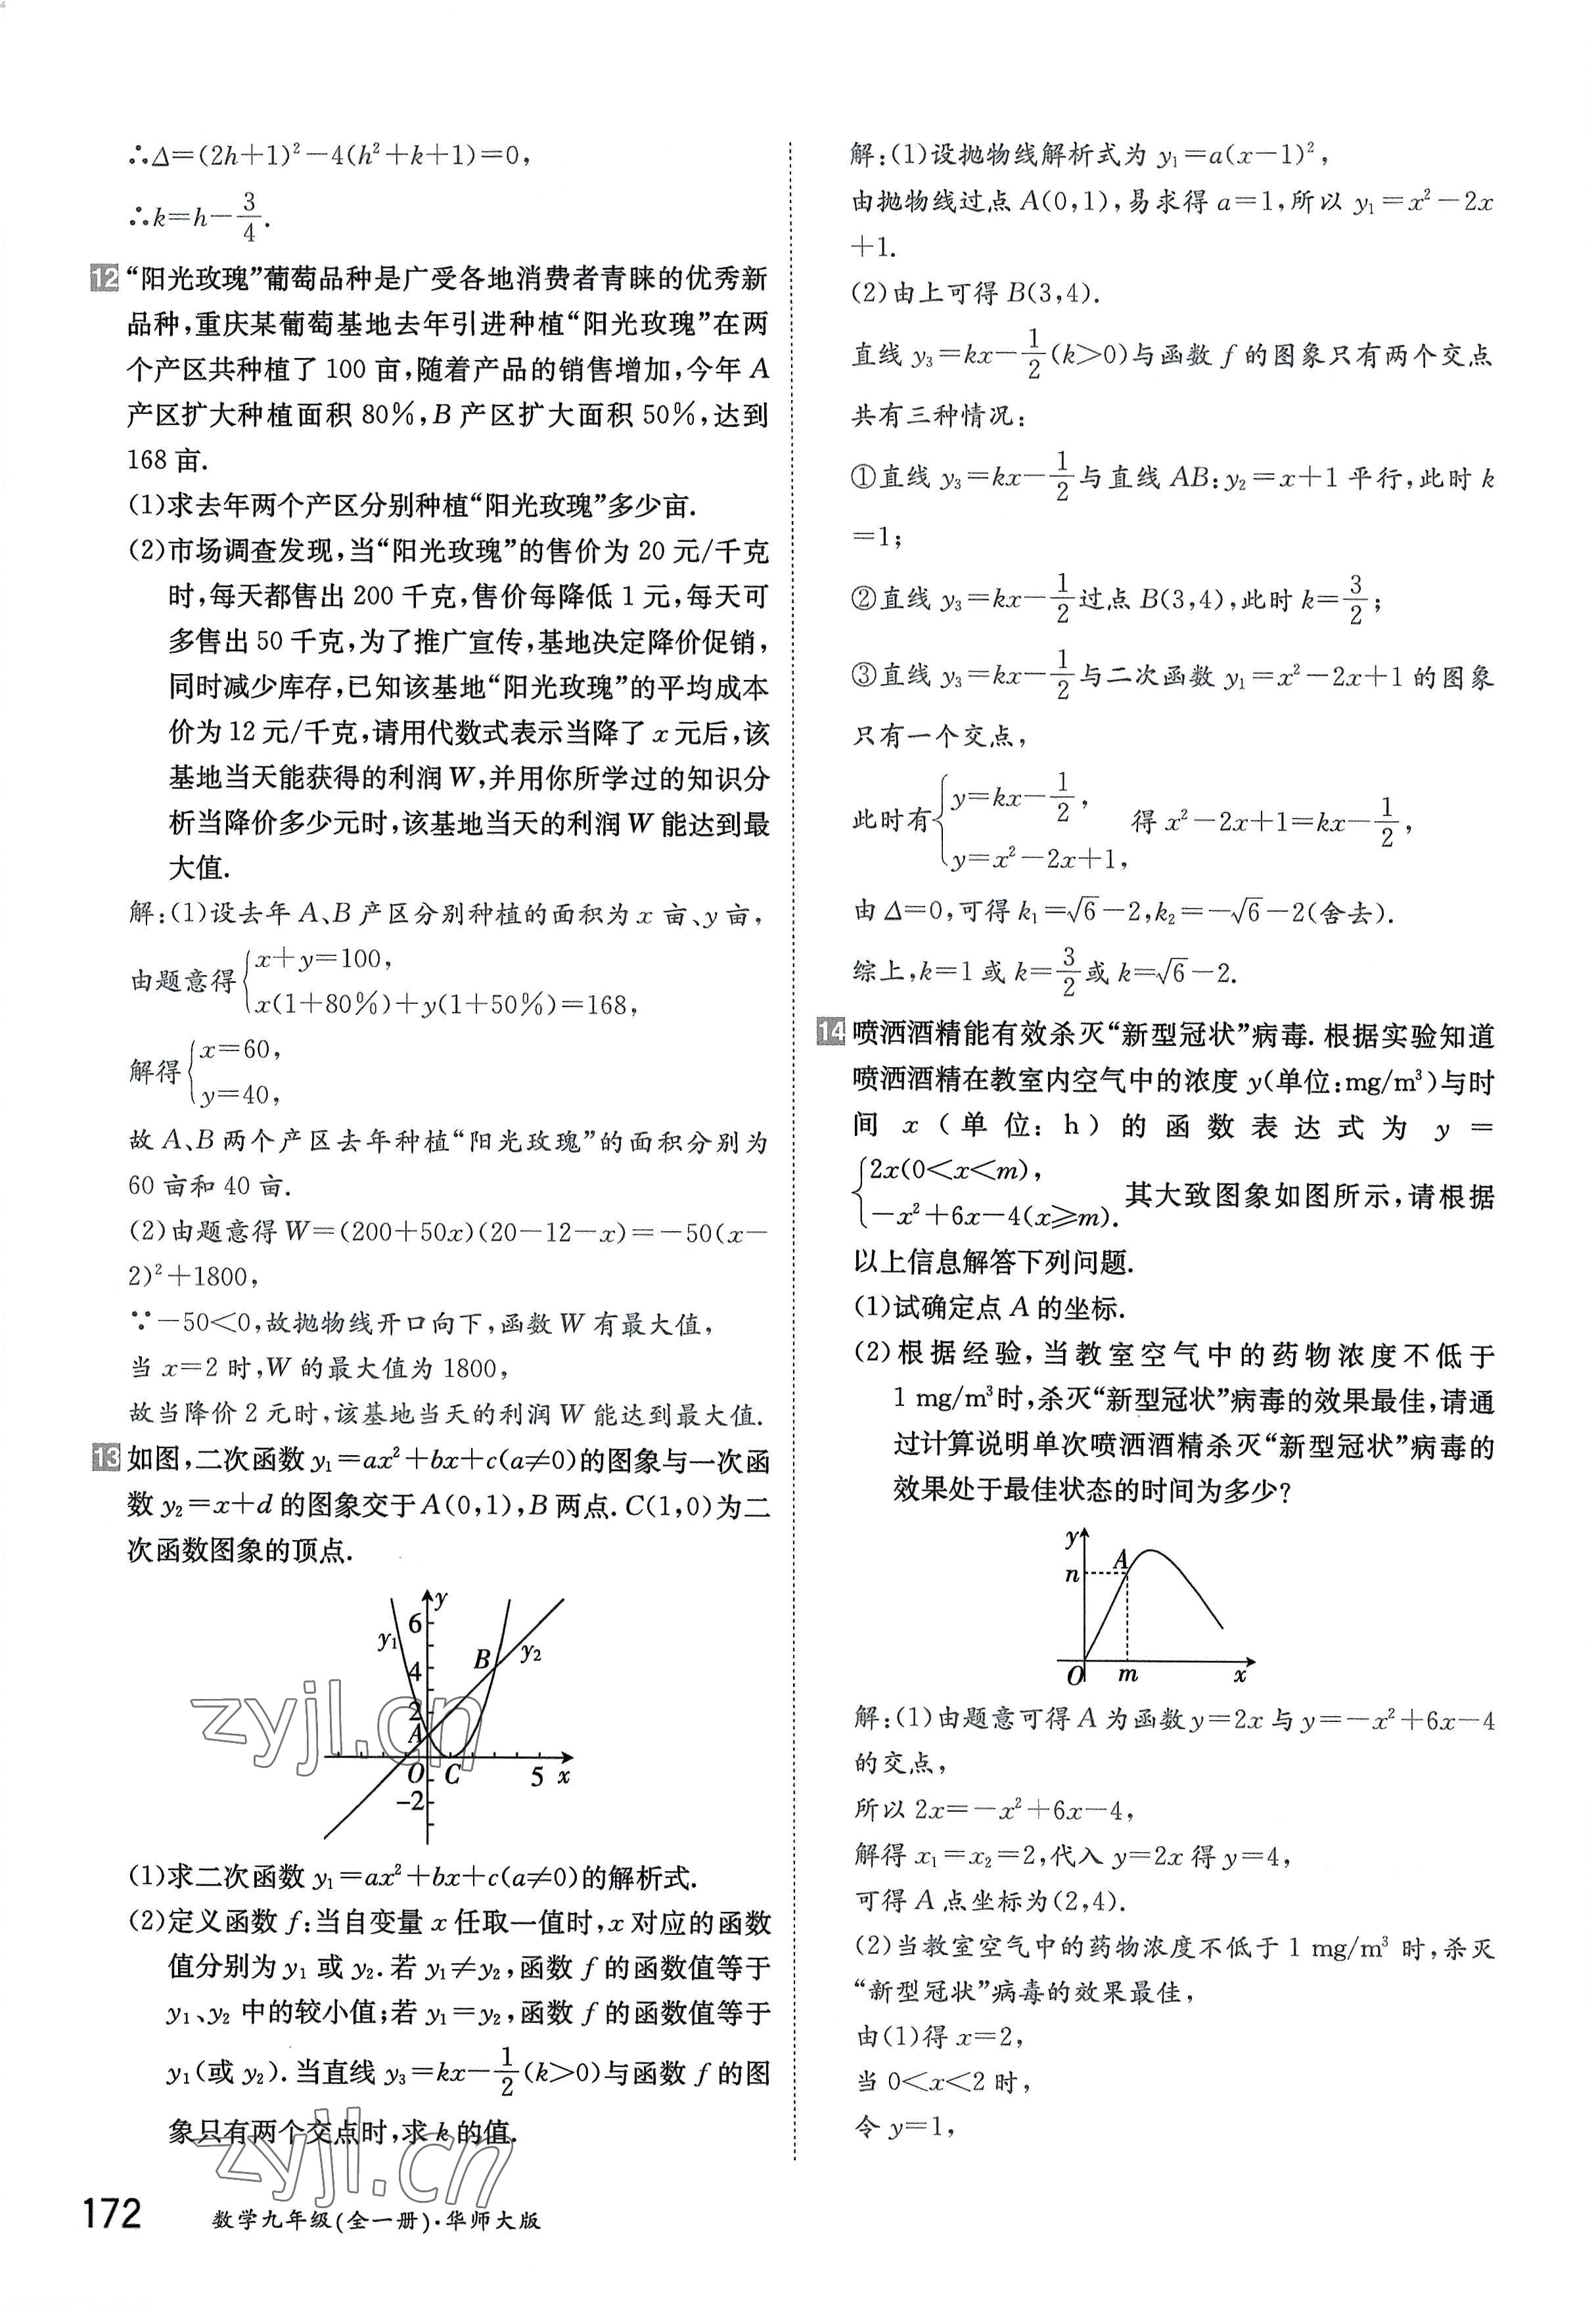 ∴Δ=(2h+1)²-4(h²+k+1)=0,
∴k=h-3/4.
12 “阳光玫瑰”葡萄品种是广受各地消费者青睐的优秀新
品种,重庆某葡萄基地去年引进种植“阳光玫瑰”在两
个产区共种植了100亩,随着产品的销售增加,今年A
产区扩大种植面积80%,B产区扩大面积50%,达到
168亩.
(1)求去年两个产区分别种植“阳光玫瑰”多少亩.
(2)市场调查发现,当“阳光玫瑰”的售价为20元/千克
时,每天都售出200千克,售价每降低1元,每天可
多售出50千克,为了推广宣传,基地决定降价促销,
同时减少库存,已知该基地“阳光玫瑰”的平均成本
价为12元/千克,请用代数式表示当降了x元后,该
基地当天能获得的利润W,并用你所学过的知识分
析当降价多少元时,该基地当天的利润W能达到最
大值.
解:(1)设去年A、B产区分别种植的面积为x亩、y亩,
由题意得{x+y=100,
x(1+80%)+y(1+50%)=168,
解得{x=60,
y=40,
故A、B两个产区去年种植“阳光玫瑰”的面积分别为
60亩和40亩.
(2)由题意得W=(200+50x)(20-12-x)=-50(x-
2)²+1800,
∵-50<0,故抛物线开口向下,函数W有最大值,
当x=2时,W的最大值为1800,
故当降价2元时,该基地当天的利润W能达到最大值.
13 如图,二次函数y₁=ax²+bx+c(a≠0)的图象与一次函
数y₂=x+d的图象交于A(0,1),B两点.C(1,0)为二
次函数图象的顶点.
y
6
y₁
B
y₂
4
2
A
O
C
5
x
-2
(1)求二次函数y₁=ax²+bx+c(a≠0)的解析式.
(2)定义函数f:当自变量x任取一值时,x对应的函数
值分别为y₁或y₂.若y₁≠y₂,函数f的函数值等于
y₁、y₂中的较小值;若y₁=y₂,函数f的函数值等于
y₁(或y₂).当直线y₃=kx-1/2(k>0)与函数f的图
象只有两个交点时,求k的值.
zyjl.cn
zyjl.cn
172
数学九年级(全一册)·华师大版
解:(1)设抛物线解析式为y₁=a(x-1)²,
由抛物线过点A(0,1),易求得a=1,所以y₁=x²-2x
+1.
(2)由上可得B(3,4).
直线y₃=kx-1/2(k>0)与函数f的图象只有两个交点
共有三种情况:
①直线y₃=kx-1/2与直线AB:y₂=x+1平行,此时k
=1;
②直线y₃=kx-1/2过点B(3,4),此时k=3/2;
③直线y₃=kx-1/2与二次函数y₁=x²-2x+1的图象
只有一个交点,
此时有{y=kx-1/2,
y=x²-2x+1, 得x²-2x+1=kx-1/2,
由Δ=0,可得k₁=√6-2,k₂=-√6-2(舍去).
综上,k=1或k=3/2或k=√6-2.
14 喷洒酒精能有效杀灭“新型冠状”病毒.根据实验知道
喷洒酒精在教室内空气中的浓度y(单位:mg/m³)与时
间x(单位:h)的函数表达式为y=
{2x(0<x<m),
-x²+6x-4(x≥m). 其大致图象如图所示,请根据
以上信息解答下列问题.
(1)试确定点A的坐标.
(2)根据经验,当教室空气中的药物浓度不低于
1 mg/m³时,杀灭“新型冠状”病毒的效果最佳,请通
过计算说明单次喷洒酒精杀灭“新型冠状”病毒的
效果处于最佳状态的时间为多少?
y
A
n
O
m
x
解:(1)由题意可得A为函数y=2x与y=-x²+6x-4
的交点,
所以2x=-x²+6x-4,
解得x₁=x₂=2,代入y=2x得y=4,
可得A点坐标为(2,4).
(2)当教室空气中的药物浓度不低于1 mg/m³时,杀灭
“新型冠状”病毒的效果最佳,
由(1)得x=2,
当0<x<2时,
令y=1,